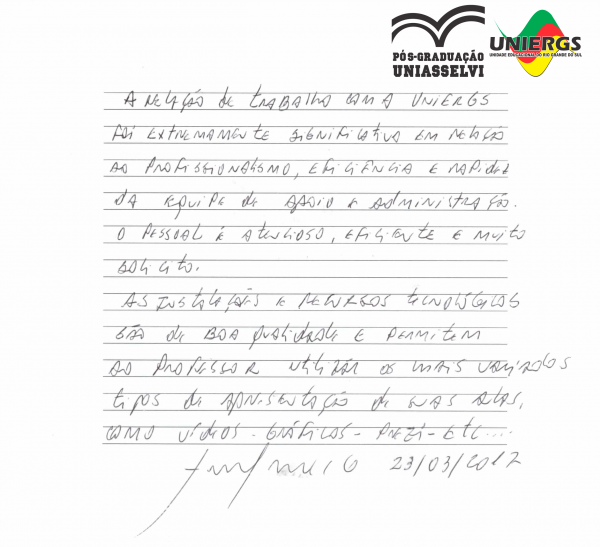 PÓS-GRADUAÇÃO
UNIASSELVI
UNIERGS
UNIDADE EDUCACIONAL DO RIO GRANDE DO SUL
A RELAÇÃO DE TRABALHO COM A UNIERGS
FOI EXTREMAMENTE SIGNIFICATIVA EM RELAÇÃO
AO PROFISSIONALISMO, EFICIÊNCIA E RAPIDEZ
DA EQUIPE DE APOIO E ADMINISTRAÇÃO.
O PESSOAL É ATENCIOSO, EFICIENTE E MUITO
SOLICITO.
AS INSTALAÇÕES E RECURSOS TECNOLÓGICOS
SÃO DE BOA QUALIDADE E PERMITEM
AO PROFESSOR UTILIZAR OS MAIS VARIADOS
TIPOS DE APRESENTAÇÃO DE SUAS AULAS,
COMO VÍDEOS - GRÁFICOS - PREZI - ETC....
23/03/2012